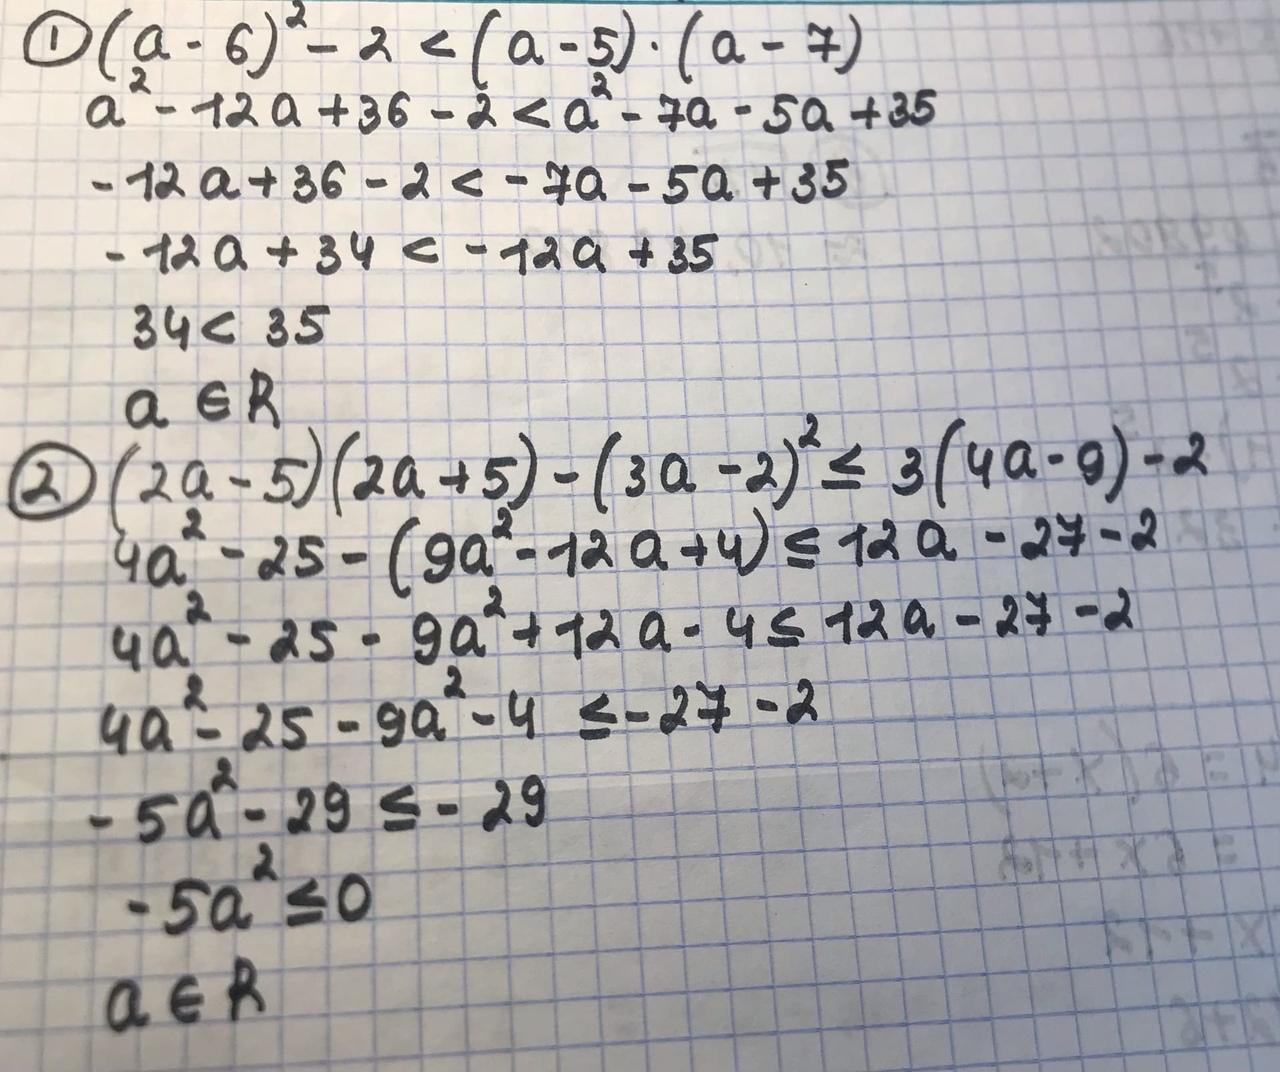 ① (a - 6)² - 2 < (a - 5) · (a - 7)
a² - 12a + 36 - 2 < a² - 7a - 5a + 35
- 12a + 36 - 2 < - 7a - 5a + 35
- 12a + 34 < - 12a + 35
34 < 35
a ∈ R
② (2a - 5)(2a + 5) - (3a - 2)² ≤ 3(4a - 9) - 2
4a² - 25 - (9a² - 12a + 4) ≤ 12a - 27 - 2
4a² - 25 - 9a² + 12a - 4 ≤ 12a - 27 - 2
4a² - 25 - 9a² - 4 ≤ - 27 - 2
- 5a² - 29 ≤ - 29
- 5a² ≤ 0
a ∈ R